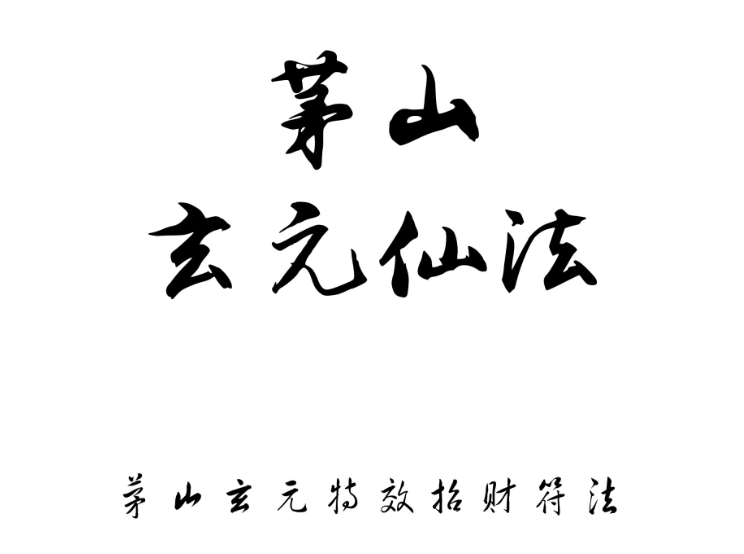 茅山
玄元仙法
茅山玄元特效招财符法